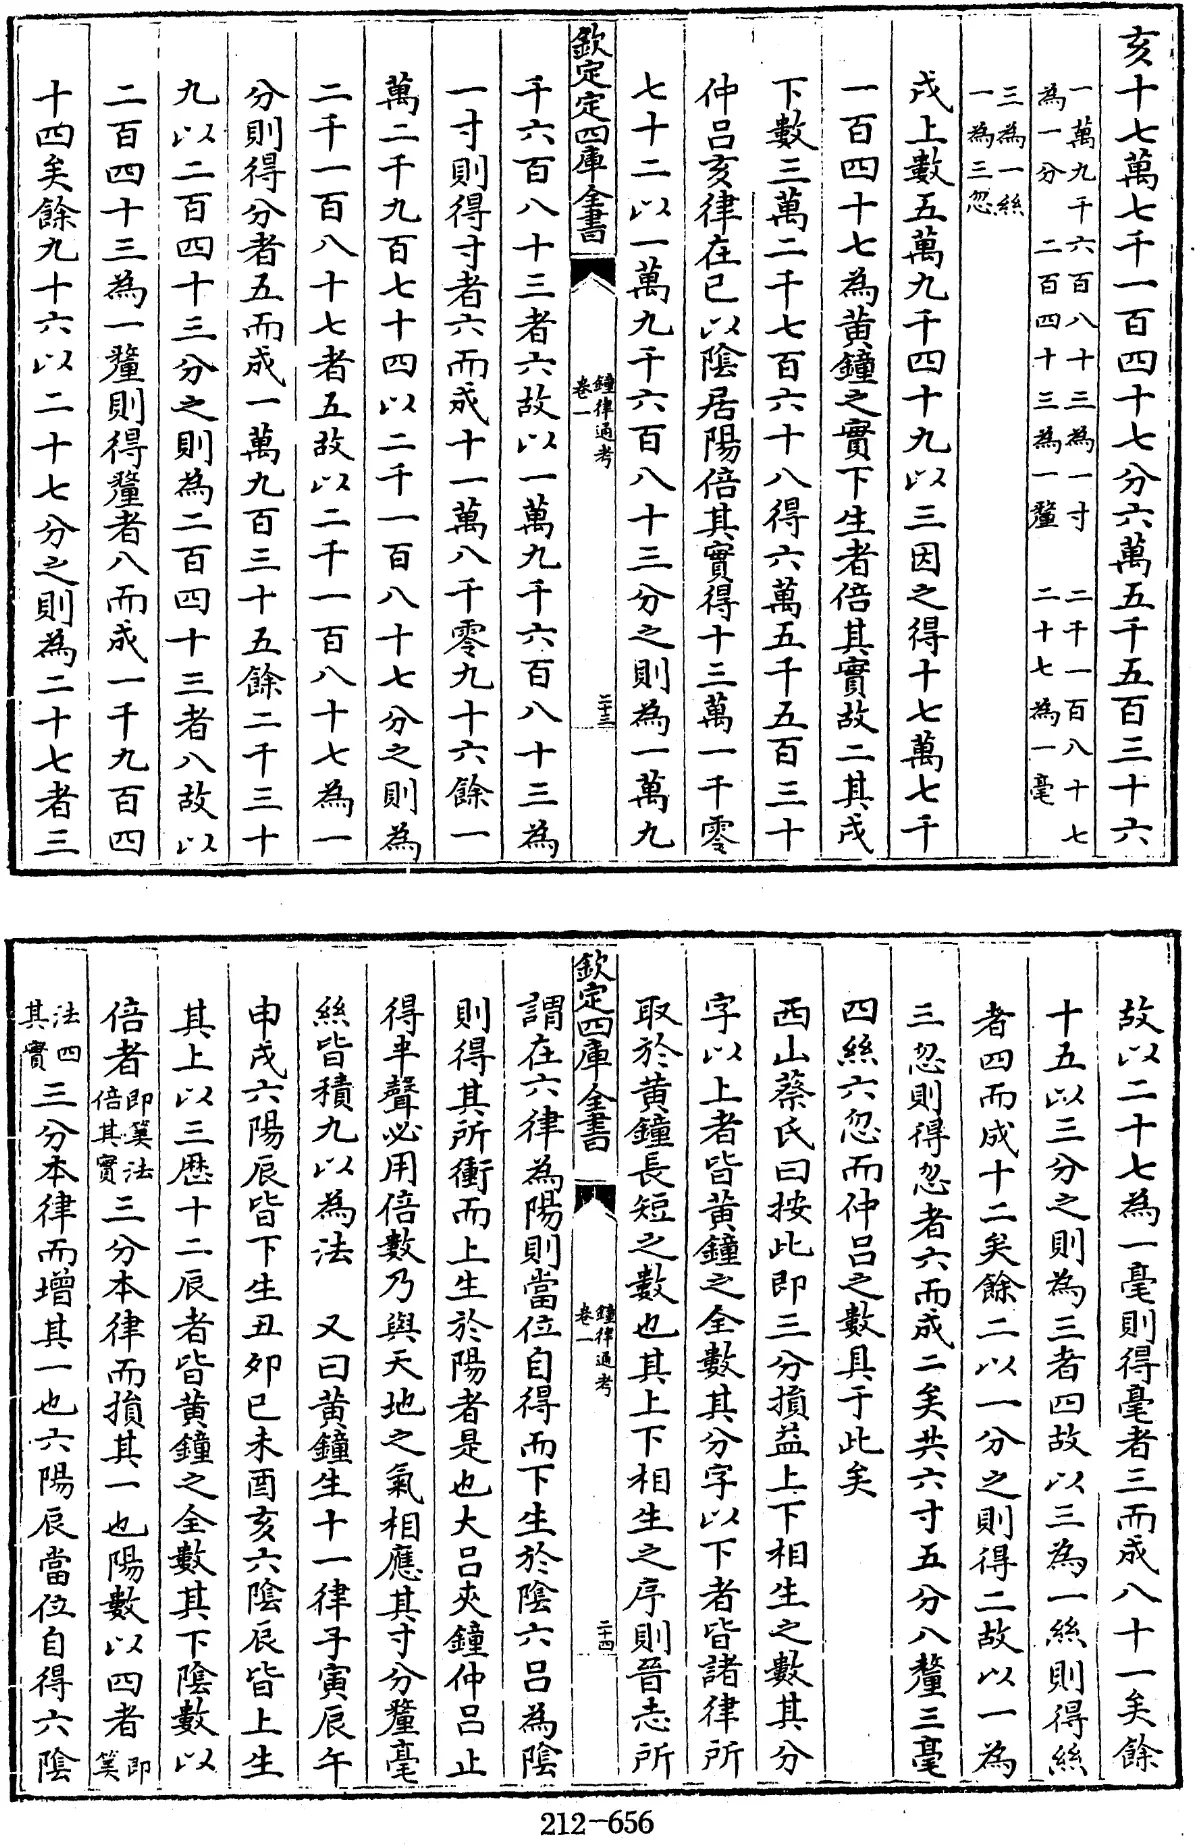 亥十七萬七千一百四十七分六萬五千五百三十六
一萬九千六百八十三為一寸　二千一百八十七
為一分　二百四十三為一釐　二十七為一毫
三為一絲
一為三忽
戌上數五萬九千四十九以三因之得十七萬七千
一百四十七為黃鐘之實下生者倍其實故二其戌
下數三萬二千七百六十八得六萬五千五百三十
仲呂亥律在已以陰居陽倍其實得十三萬一千零
七十二以一萬九千六百八十三分之則為一萬九
欽定定四庫全書
鐘律通考
卷一
二十三
千六百八十三者六故以一萬九千六百八十三為
一寸則得寸者六而成十一萬八千零九十六餘一
萬二千九百七十四以二千一百八十七分之則為
二千一百八十七者五故以二千一百八十七為一
分則得分者五而成一萬九百三十五餘二千三十
九以二百四十三分之則為二百四十三者八故以
二百四十三為一釐則得釐者八而成一千九百四
十四矣餘九十六以二十七分之則為二十七者三
故以二十七為一毫則得毫者三而成八十一矣餘
十五以三分之則為三者四故以三為一絲則得絲
者四而成十二矣餘二以一分之則得二故以一為
三忽則得忽者六而成二矣共六寸五分八釐三毫
四絲六忽而仲呂之數具于此矣
西山蔡氏曰按此即三分損益上下相生之數其分
字以上者皆黃鐘之全數其分字以下者皆諸律所
取於黃鐘長短之數也其上下相生之序則晉志所
欽定四庫全書
鐘律通考
卷一
二十四
謂在六律為陽則當位自得而下生於陰六呂為陰
則得其所衝而上生於陽者是也大呂夾鐘仲呂止
得半聲必用倍數乃與天地之氣相應其寸分釐毫
絲皆積九以為法　又曰黃鐘生十一律子寅辰午
申戌六陽辰皆下生丑卯已未酉亥六陰辰皆上生
其上以三歷十二辰者皆黃鐘之全數其下陰數以
倍者即筭法倍其實三分本律而損其一也陽數以四者即筭
法四其實三分本律而增其一也六陽辰當位自得六陰
212-656